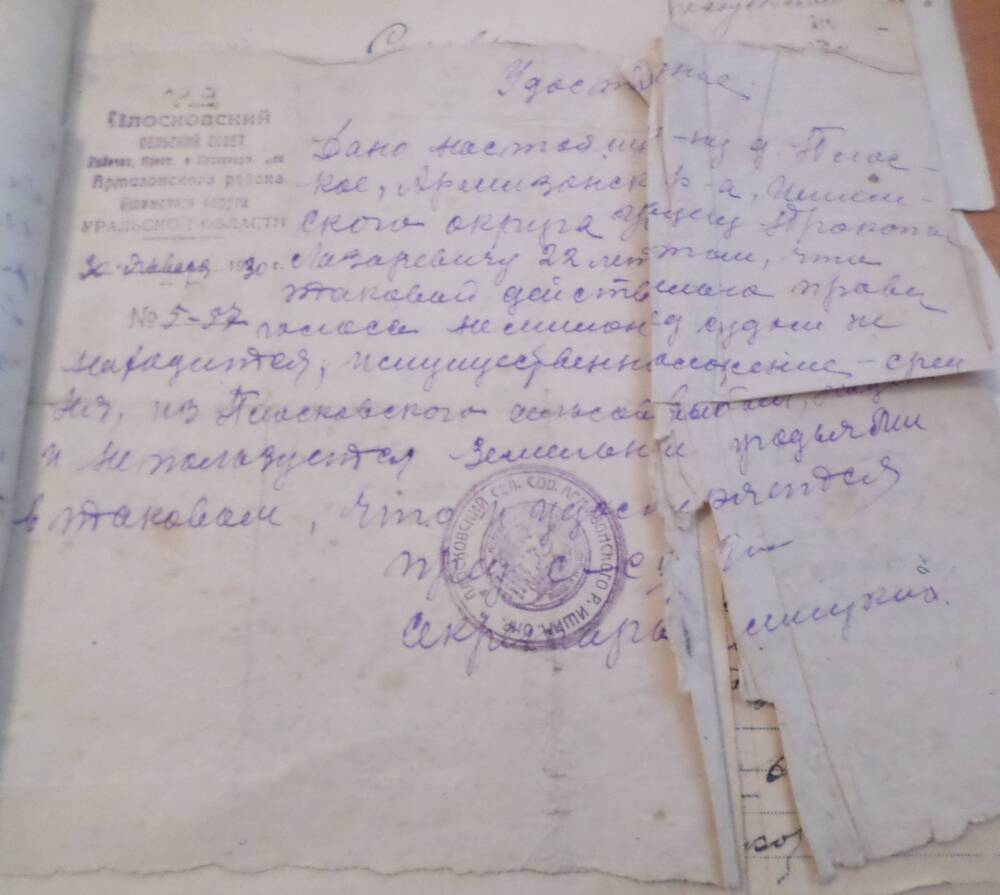 Удост ение
ПЛОСКОВСКИЙ
СЕЛЬСКИЙ СОВЕТ
Рабочих, Крест. и Красноарм.
Армизонского района
Ишимского округа
УРАЛЬСКОЙ ОБЛАСТИ
30 января 1930 г.
№ 5-37
Дано настоящ -ну д. Плос-
кое, Армизонск р-а, Ишим-
ского округа Прокопи
Лазаревичу 22 лет том, что
таковой действ права
голоса не лишон д судом не
находится, имущественно ожение - сред
няя, из Плосковского сельсов выбыл,
и не пользуется земельн угодьями
в таковом, что и удос ряется
пред с/с
Секретарь
ПЛОСКОВСКИЙ СЕЛ. СОВ. АРМИЗОНСКОГО Р. ИШИМ. ОКР.